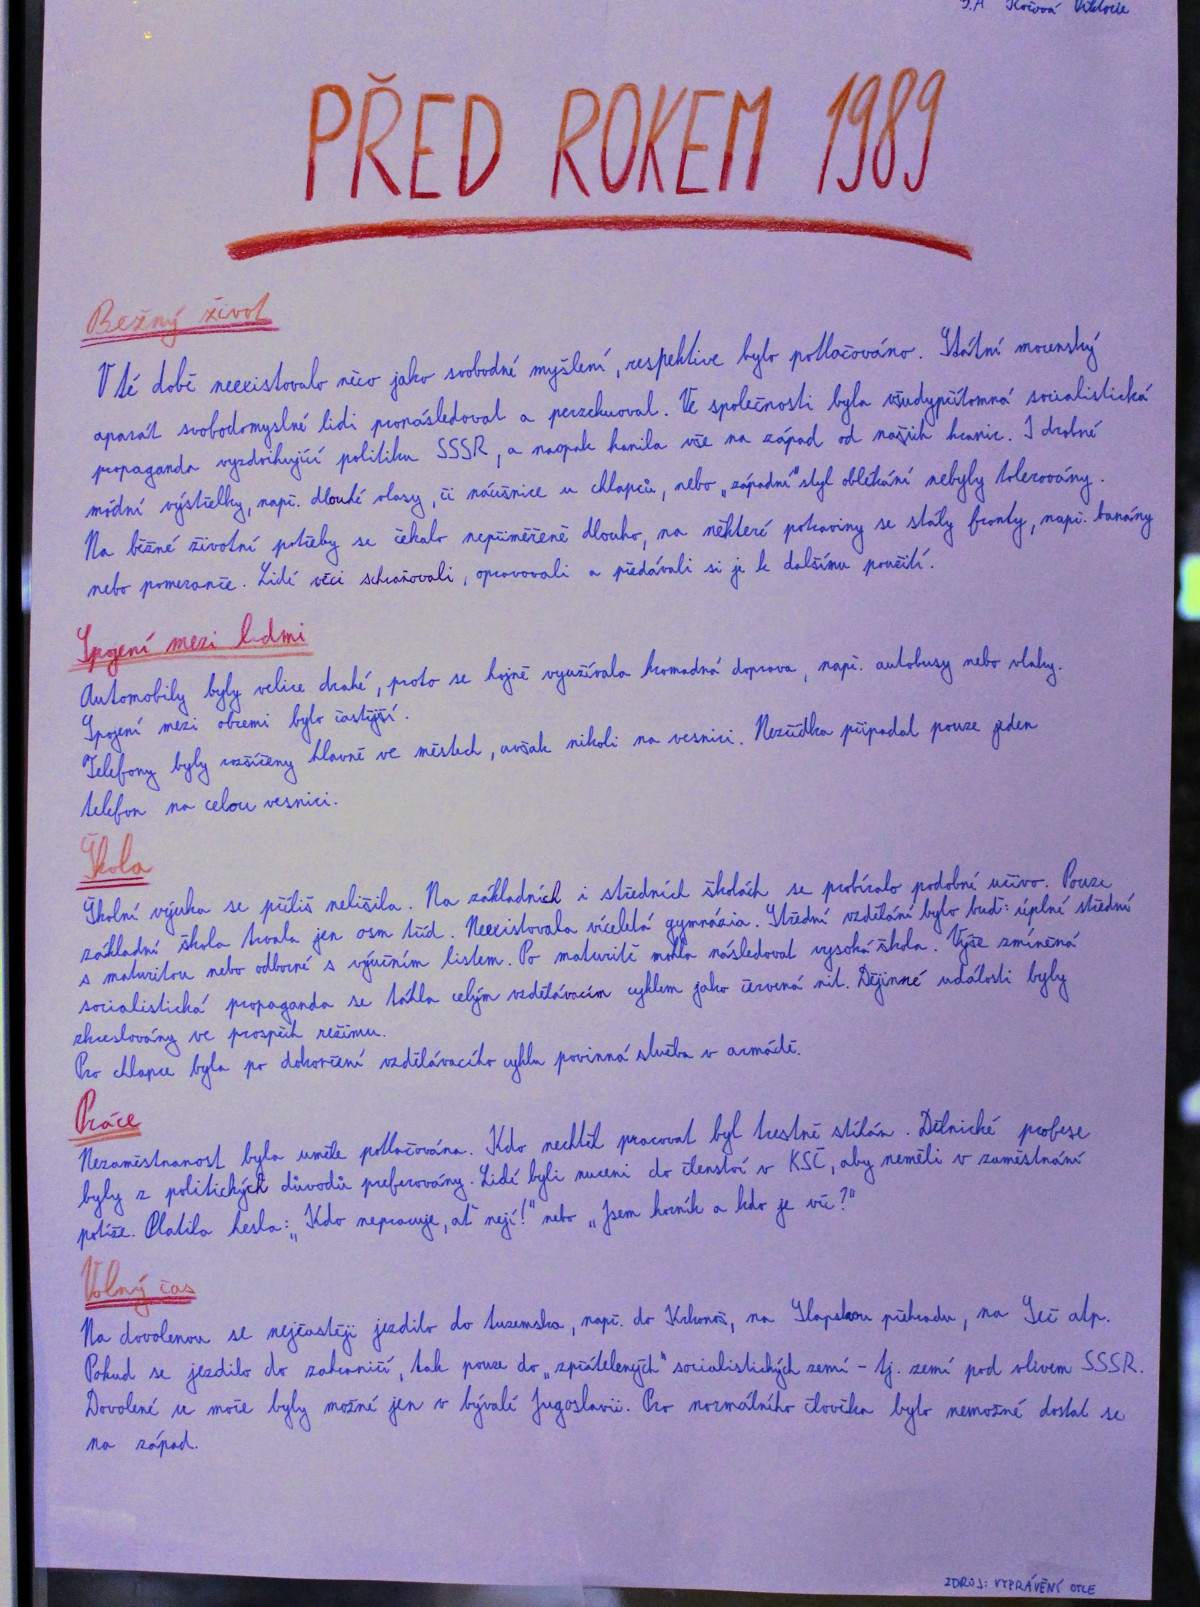 Kočová Viktorie
PŘED ROKEM 1989
Bežný život
V té době neexistovalo něco jako svobodné myšlení, respektive bylo potlačováno. Státní mocenský
aparát svobodomyslné lidi pronásledoval a perzekuoval. Ve společnosti byla všudypřítomná socialistická
propaganda vyzdvihující politiku SSSR, a naopak hanila vše na západ od našich hranic. I drobné
módní výstřelky, např. dlouhé vlasy, či náušnice u chlapců, nebo „západní“ styl oblékání nebyly tolerovány.
Na běžné životní potřeby se čekalo nepřiměřeně dlouho, na některé potraviny se stály fronty, např. banány
nebo pomeranče. Lidé věci schraňovali, opravovali a předávali si je k dalšímu použití.
Spojení mezi lidmi
Automobily byly velice drahé, proto se hojně využívala hromadná doprava, např. autobusy nebo vlaky.
Spojení mezi obcemi bylo častější.
Telefony byly rozšířeny hlavně ve městech, avšak nikoli na vesnici. Nezřídka připadal pouze jeden
telefon na celou vesnici.
Škola
Školní výuka se příliš nelišila. Na základních i středních školách se probíralo podobné učivo. Pouze
základní škola trvala jen osm tříd. Neexistovala víceletá gymnázia. Střední vzdělání bylo buď: úplné střední
s maturitou nebo odborné s výučním listem. Po maturitě mohla následovat vysoká škola. Výše zmíněná
socialistická propaganda se táhla celým vzdělávacím cyklem jako červená nit. Dějinné události byly
zkreslovány ve prospěch režimu.
Pro chlapce byla po dokončení vzdělávacího cyklu povinná služba v armádě.
Práce
Nezaměstnanost byla uměle potlačována. Kdo nechtěl pracovat byl trestně stíhán. Dělnické profese
byly z politických důvodů preferovány. Lidé byli nuceni do členství v KSČ, aby neměli v zaměstnání
potíže. Platila hesla: „Kdo nepracuje, ať nejí!“ nebo „Jsem horník a kdo je víc?“
Volný čas
Na dovolenou se nejčastěji jezdilo do tuzemska, např. do Krkonoš, na Slapskou přehradu, na Seč atp.
Pokud se jezdilo do zahraničí, tak pouze do „zpřátelených“ socialistických zemí – tj. zemí pod vlivem SSSR.
Dovolené u moře byly možné jen v bývalé Jugoslavii. Pro normálního člověka bylo nemožné dostat se
na západ.
ZDROJ: VYPRÁVĚNÍ OTCE